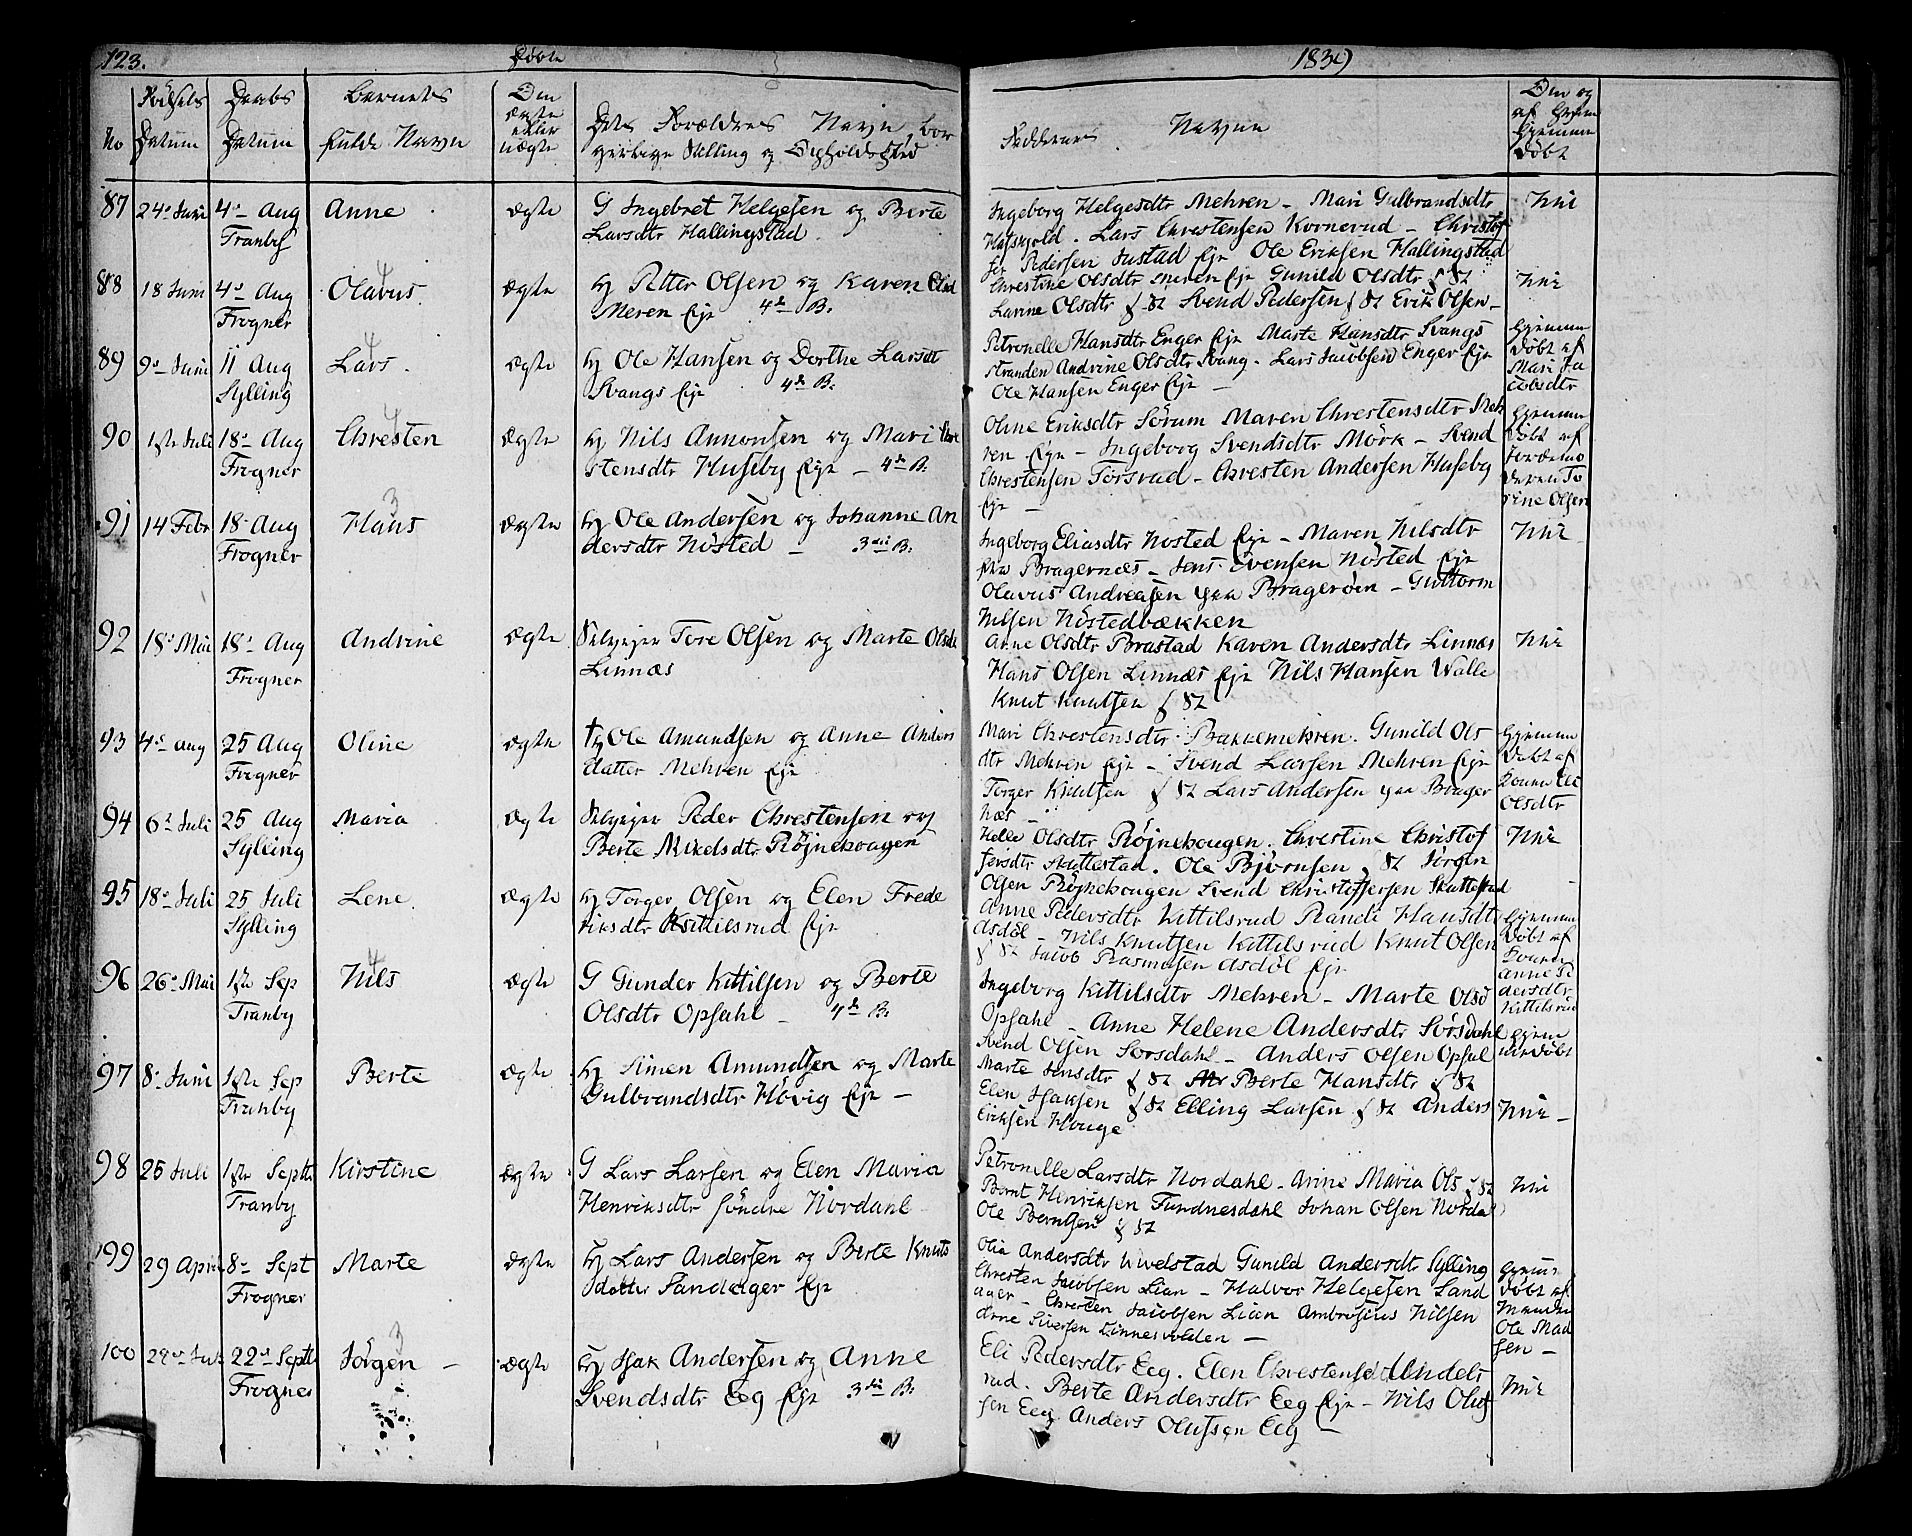 123.
Døbte
1839
No
Fødsels
Datum
Daabs
Datum
Barnets
fulde Navn
Om
ægte
eller
uægte
Dets Forældres Navn, bor
gerlige Stilling og Opholdsted
Faddernes Navne
Døbt
87 24de Juni 4de Aug Anne ægte G Ingebret Helgesen og Berte
Tranby Larsdtr Hallingstad
Ingeborg Helgesdtr Mehren - Mari Gulbrandsdtr
Lars Chrestensen Kornerud - Christof
fer Pedersen Justad Eje Ole Eriksen Hallingstad
Nei
88 18 Juni 4de Aug Olavus ægte Hj Petter Olsen og Karen Olsd
Frogner Meren Eje 4de B.
Chrestine Olsdtr Meren Eje Gunild Olsdtr
Larine Olsdtr Svend Pedersen Erik Olsen
Nei
89 9de Juni 11 Aug Lars ægte Hj Ole Hansen og Dorthe Larsdt
Sylling Svangs Eje 4de B.
Petronelle Hansdtr Enger Eje Marte Hansdtr Svangs
stranden Andrine Olsdtr Svang - Lars Jacobsen Enger Eje
Ole Hansen Enger Eje
Hjemme
døbt af
Mari Ja
cobsdtr
90 1ste Juli 18de Aug Chresten ægte Hj Nils Annonsen og Mari Chre
Frogner stensdtr Huseby Eje - 4de B.
Oline Eriksdtr Sørum Maren Chrestensdtr Meh
ren Eje - Ingeborg Svendsdtr Mörk - Svend
Chrestensen Torsrud - Chresten Andersen Huseby
Eje
Hjemme
døbt af
Jordemo
deren To
rine Olsen
91 14 Febr 18 Aug Hans ægte Hj Ole Andersen og Johanne An
Frogner dersdtr Nösted - 3die B.
Ingeborg Eliasdtr Nösted Eje - Maren Nilsdtr
Bragernæs - Jens Evensen Nösted Eje
Olavus Andreasen paa Bragerøen - Guttorm
Nilsen Nöstedbækken
Nei
92 18de Mai 18de Aug Andrine ægte Selvejer Tore Olsen og Marte Olsdtr
Frogner Linnæs
Anne Olsdtr Brastad Karen Andersdtr Linnæs
Hans Olsen Linnæs Eje Nils Hansen Walle
Knut Knutsen
Nei
93 4de Aug 25 Aug Oline ægte Hj Ole Amundsen og Anne Anders
Frogner datter Mehren Eje
Mari Chrestensdtr Bakkemehren. Gunild Ols
dtr Mehren Eje - Svend Larsen Mehren Eje
Torger Knutsen Lars Andersen paa Brager
næs
Hjemme
døbt af
Olsdtr
94 6te Juli 25 Aug Maria ægte Selvejer Peder Chrestensen og
Sylling Berte Mikelsdtr Röjnehougen
Helle Olsdtr Röjnehougen. Chrestine Christof
fersdtr Skuttestad. Ole Björnsen Jörgen
Olsen Röjnehougen Svend Christoffersen Skuttestad
Nei
95 18de Juli 25 Juli Lene ægte Hj Torger Olsen og Elen Frede
Sylling riksdtr Kittilsrud Eje
Anne Pedersdtr Kittilsrud Randi Hansdtr
Asdöl - Nils Knutsen Kittilsrud Knut Olsen
Jacob Rasmusen Asdöl Eje
Hjemme
døbt af
Anne Pe
dersdtr
Kittilsrud
96 26de Mai 1ste Sep Nils ægte G Gunder Kittilsen og Berte
Tranby Olsdtr Opsahl - 4de B.
Ingeborg Kittilsdtr Mehren - Marte Olsd
Opsahl - Anne Helene Andersdtr Sörsdahl
Svend Olsen Sorsdahl - Anders Olsen Opsal
Hjem
medøbt
97 8de Juni 1ste Sep Berte ægte Hj Simen Amundsen og Marte
Tranby Gulbrandsdtr Hövig Eje -
Marte Jensdtr Berte Hansdtr
Elen Elling Larsen Anders
Eriksen Houge
Nei -
98 25 Juli 1ste Septb Kirstine ægte G Lars Larsen og Elen Maria
Tranby Henriksdtr Söndre Nordahl
Petronelle Larsdtr Nordahl - Anne Maria Ols
Bernt Henriksen Tundnesdahl Johan Olsen Nordal
Ole Berntsen
Nei
99 29 April 8de Sept Marte ægte Hj Lars Andersen og Berte Knuts
Frogner datter Sandager Eje
Olia Andersdtr Gunild Andersdtr Sylling
Chresten Jacobsen Lian - Halvor Helgesen Sand
ager - Chresten Jacobsen Lian Ambrosius Nilsen
Arne Siversen Linnesvolden -
døbt af
Ole Mad
sen -
100 22de Septb Jörgen ægte Hj Isak Andersen og Anne
Frogner Svendsdtr Eeg Eje 3die B.
Eli Pedersdtr Eeg. Elen Chrestensd
rud. Berte Andersdtr Eeg Eje - Nils Oluf
sen Eeg Anders Olufsen Eeg -
Nei